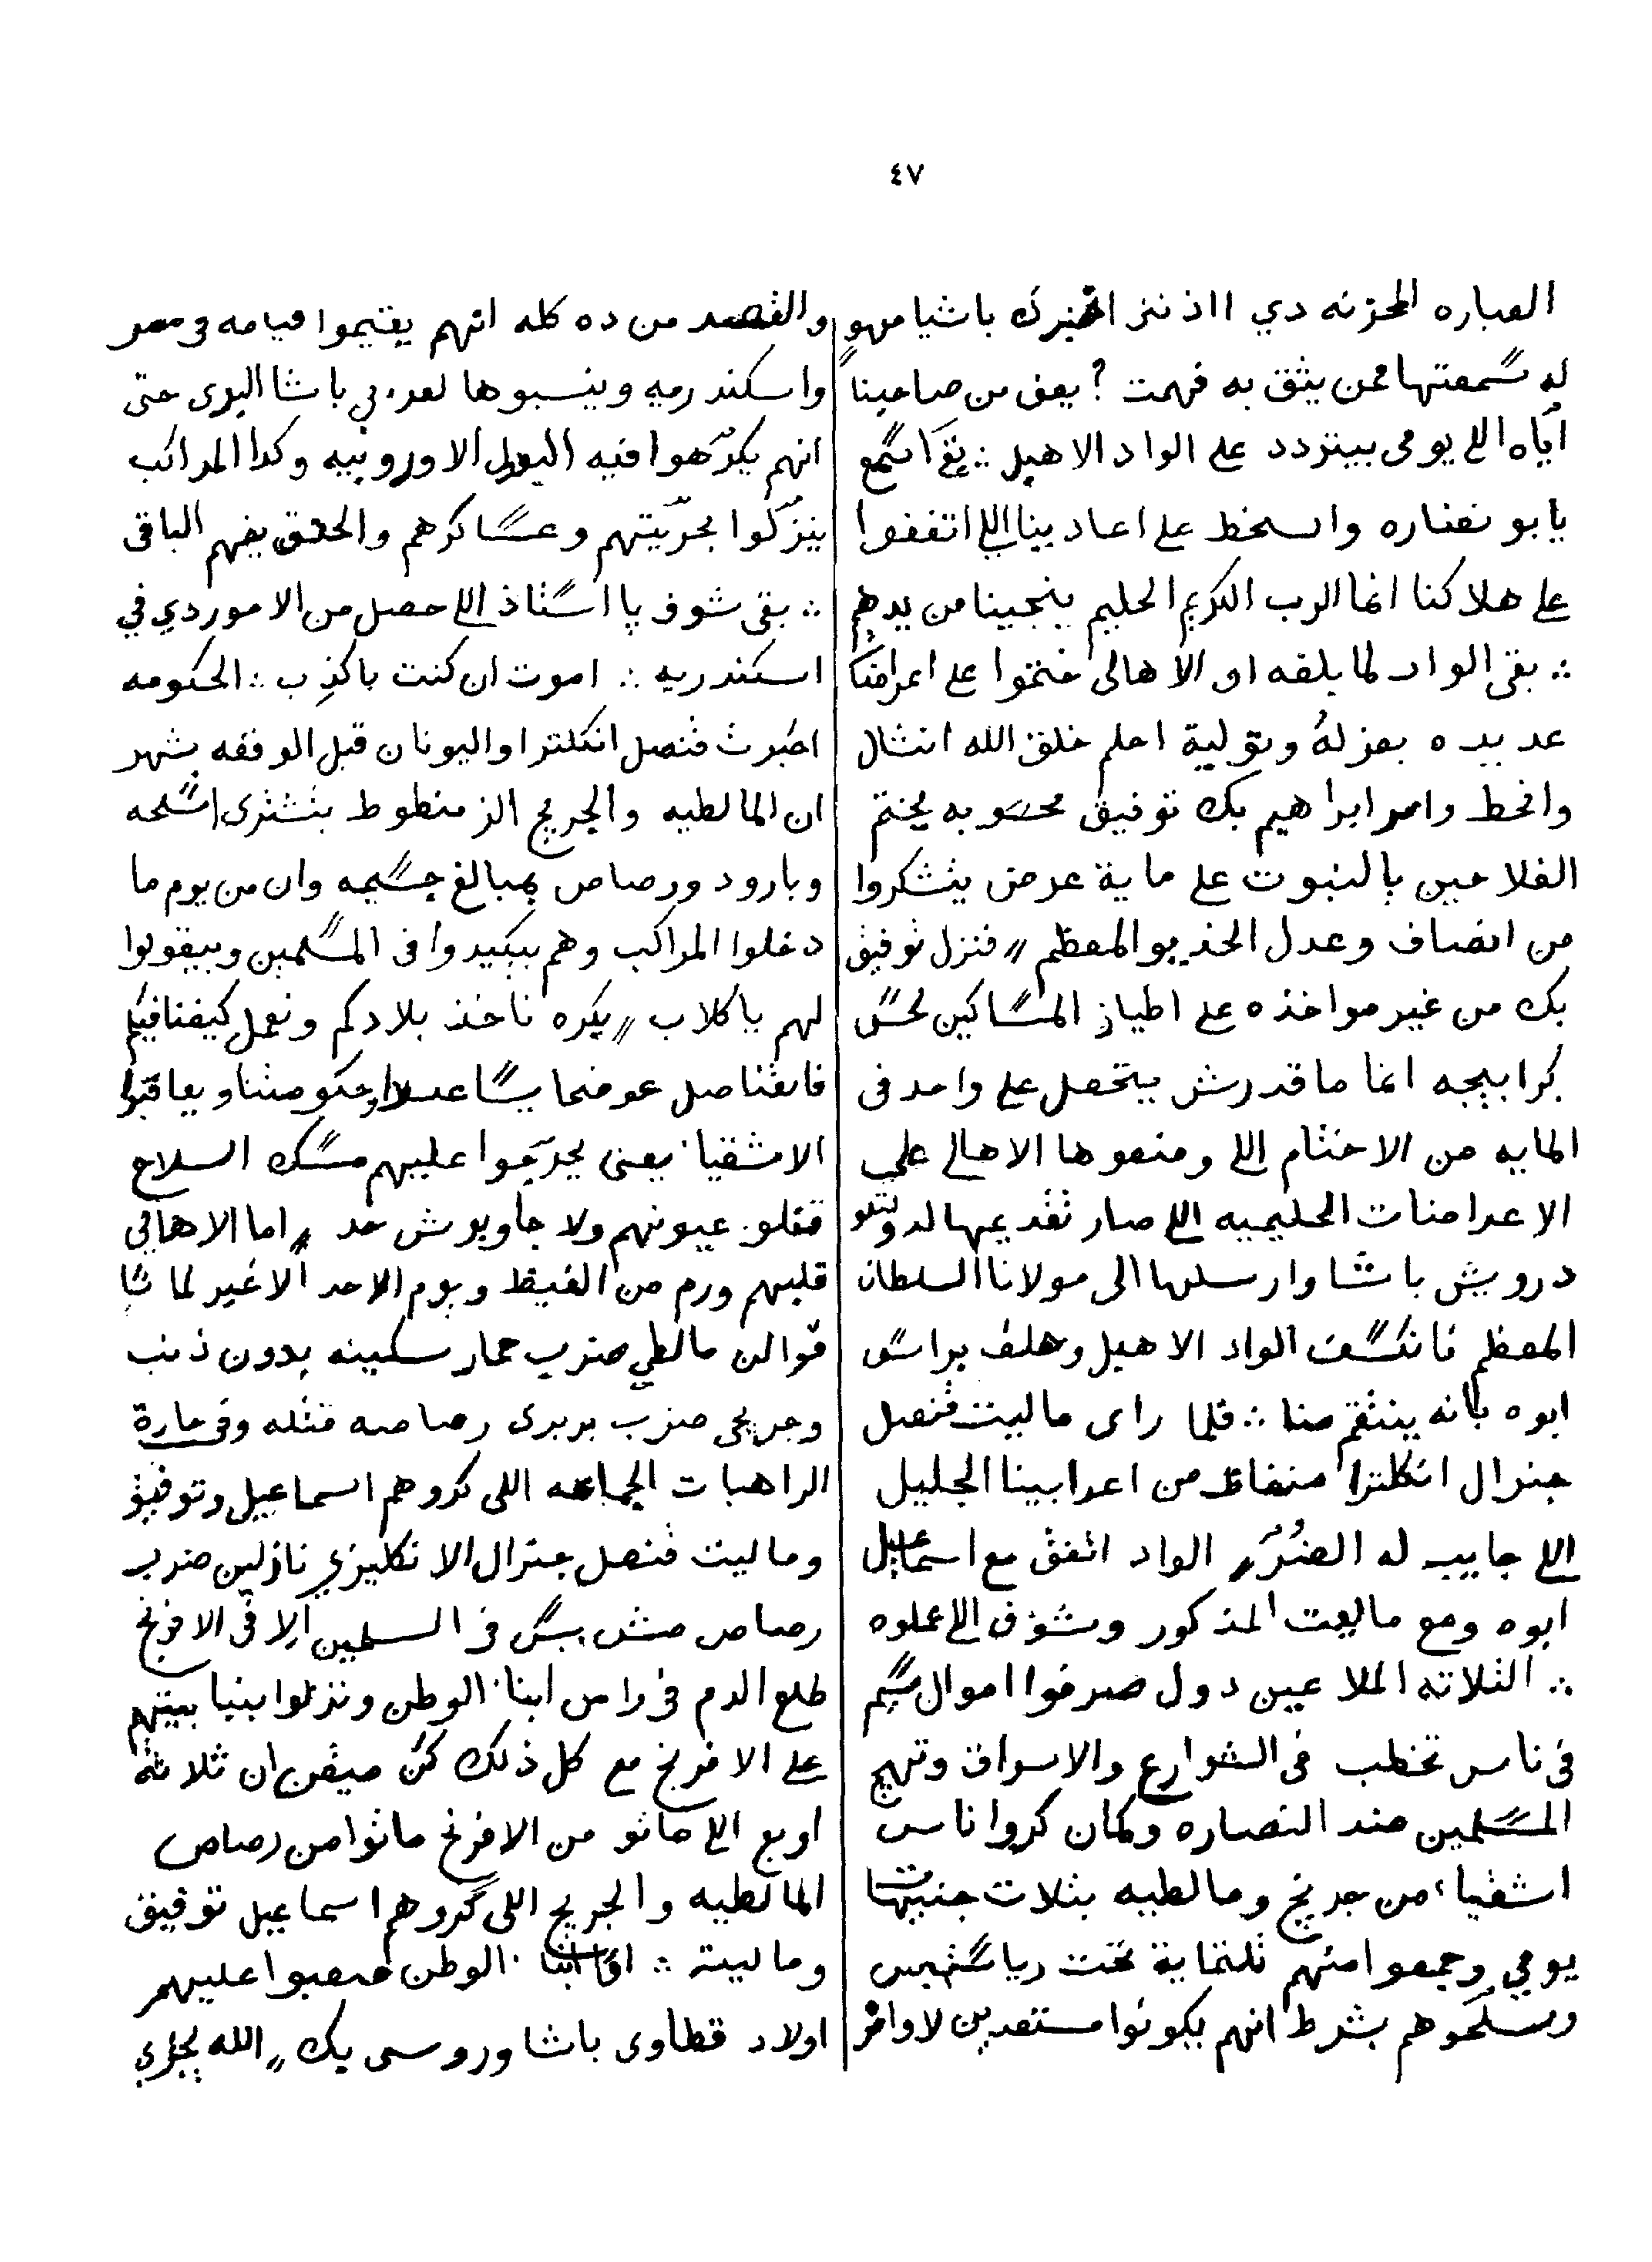 ٤٧
العباره المحزنه دي ااذ ننز اخبرك باشيا مهو
له سمعتها ممن يثق به فهمت ? يعنى من صاحبنا
اياه اللي يومى بيتردد على الواد الاهبل ∴ بقا اسمع
يابو نضاره واسخط على اعاديينا اللي اتفقوا
على هلاكنا انما الرب الكريم الحليم ينجينا من يدهم
∴ بقى الواد لما بلغه ان الاهالى ختموا على اعراضا
عديده بعزله وتولية احلم خلق الله انشال
وانحط وامر ابراهيم بك توفيق محسوبه يختم
الفلاحين بالنبوت على ماية عرض يتشكروا
من انصاف وعدل الخديو المعظم // فنزل توفيق
بك من غير مواخذه على اطياز المساكين لحس
كرابيجه انما ما قدرش يتحصل على واحد فى
المايه من الاختام اللي وضعوها الاهالي على
الاعراضات الحليميه اللي صار تقديمها لدولتلو
درويش باشا وارسلها الى مولانا السلطان
المعظم فانكسف الواد الاهبل وحلف براس
ابوه بانه ينتقم منا ∴ فلما راى ماليت قنصل
جنرال انكلترا منغاظ من اعرابينا الجليل
اللي جايب له الضرر الواد اتفق مع اسماعيل
ابوه ومع ماليت المذكور وشوف اللي عملوه
∴ التلاته الملاعين دول صرفوا اموال جسيم
فى ناس تخطب فى الشوارع والاسواق وتهيج
المسلمين ضد النصاره وكمان كروا ناس
اشقيا من جريج ومالطيه بتلات جنيهات
يومي وجمعوا منهم تلتماية تحت رياستهم
وسلحوهم بشرط انهم يكونوا مستعدين لاوامر
والقصد من ده كله انهم يقيموا قيامه فى مصر
واسكندريه وينسبوها لعرابي باشا البرى حتى
انهم يكرهوا فيه الدول الاوروبيه وكدا المراكب
ينزلوا بحريتهم وعساكرهم والحدق يفهم الباقى
∴ بقى شوف يا استاذ اللي حصل من الامور دي في
اسكندريه ∴ اموت ان كنت باكذب ∴ الحكومه
اخبرت قنصل انكلترا واليونان قبل الوقعه بشهر
ان المالطيه والجريج الزمنطوط بتشترى اسلحه
وبارود ورصاص بمبالغ جسيمه وان من يوم ما
دخلوا المراكب وهم بيكيدوا فى المسلمين وبيقولوا
لهم يا كلاب // بكره ناخذ بلادكم ونعمل كيفنا فيكم
فالقناصل عوضما يساعدوا حكومتنا ويعاقبوا
الاشقيا يعنى يحرجوا عليهم مسك السلاح
قفلو عيونهم ولا جاوبوش حد // اما الاهالى
قلبهم ورم من الغيظ ويوم الاحد الاغير لما شا
فوا ان مالطي ضرب حمار سكينه بدون ذنب
وجريجى ضرب بربرى رصاصه قتله وفى حارة
الراهبات الجماعه اللي كروهم اسماعيل وتوفيق
وماليت قنصل جنرال الانكليزي نازلين ضرب
رصاص مش بس فى المسلمين الا فى الافرنج
طلع الدم فى راس ابنا الوطن ونزلوا بنيا بيتهم
على الافرنج مع كل ذلك كن ميقن ان ثلاثة
اربع اللي ماتو من الافرنج ماتوا من رصاص
المالطيه والجريج اللي كروهم اسماعيل توفيق
وماليت ∴ اما ابنا الوطن صعبوا عليهم
اولاد قطاوى باشا وروسى بك // الله يجازي